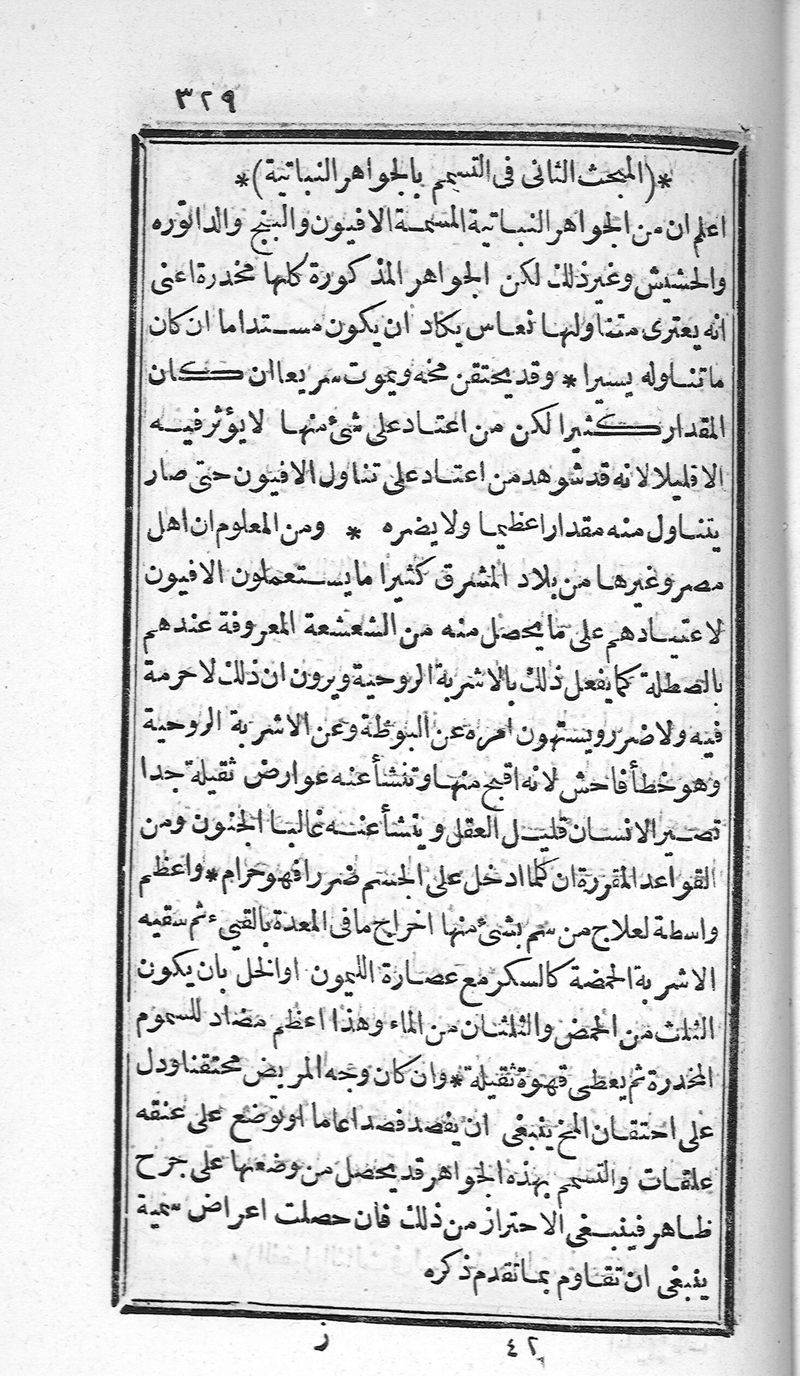 ٣٢٩
*(المبحث الثانى فى التسمم بالجواهر النباتية)*
اعلم ان من الجواهر النباتية المسمة الافيون والبنج والداتوره
والحشيش وغير ذلك لكن الجواهر المذكورة كلها مخدرة اعنى
انه يعترى متناولها نعاس يكاد ان يكون مستداما ان كان
ما تناوله يسيرا * وقد يحتقن مخه ويموت سريعا ان كان
المقدار كثيرا لكن من اعتاد على شئ منها لا يؤثر فيه
الا قليلا لانه قد شوهد من اعتاد على تناول الافيون حتى صار
يتناول منه مقدارا عظيما ولا يضره * ومن المعلوم ان اهل
مصر وغيرها من بلاد المشرق كثيرا ما يستعملون الافيون
لاعتيادهم على ما يحصل منه من الشعشعة المعروفة عندهم
بالصطلة كما يفعل ذلك بالاشربة الروحية ويرون ان ذلك لا حرمة
فيه ولا ضرر ويستهون امره عن البوظة وعن الاشربة الروحية
وهو خطأ فاحش لانه اقبح منها وتنشأ عنه عوارض ثقيلة جدا
تصير الانسان قليل العقل وينشأ عنه غالبا الجنون ومن
القواعد المقررة ان كلما ادخل على الجسم ضررا فهو حرام * واعظم
واسطة لعلاج من سم بشئ منها اخراج ما فى المعدة بالقيء ثم سقيه
الاشربة الحمضة كالسكر مع عصارة الليمون او الخل بان يكون
الثلث من الحمض والثلثان من الماء وهذا اعظم مضاد للسموم
المخدرة ثم يعطى قهوة ثقيلة * وان كان وجه المريض محتقنا ودل
على احتقان المخ ينبغى ان يفصد فصدا عاما او توضع على عنقه
علقات والتسمم بهذه الجواهر قد يحصل من وضعها على جرح
ظاهر فينبغى الاحتراز من ذلك فان حصلت اعراض سمية
ينبغى ان تقاوم بما تقدم ذكره
٤٢ ز